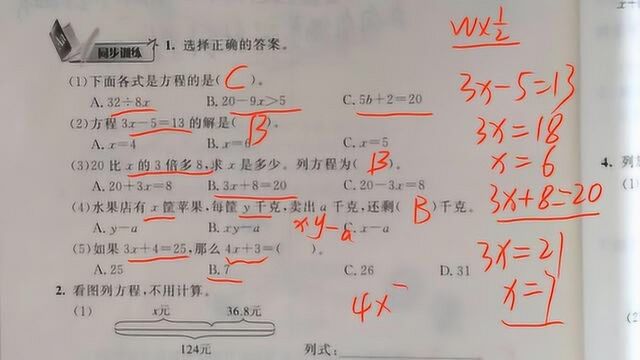 同步训练
1. 选择正确的答案。
(1)下面各式是方程的是( C )。
A. 32÷8x B. 20-9x>5 C. 5b+2=20
(2)方程 3x-5=13 的解是( B )。
A. x=4 B. x=6 C. x=5
(3)20 比 x 的 3 倍多 8,求 x 是多少。列方程为( B )。
A. 20+3x=8 B. 3x+8=20 C. 20-3x=8
(4)水果店有 x 筐苹果,每筐 y 千克,卖出 a 千克,还剩( B )千克。
A. y-a B. xy-a C. x-a
xy-a
(5)如果 3x+4=25,那么 4x+3=( )。
A. 25 B. 7 C. 26 D. 31
2. 看图列方程,不用计算。
(1) x元 36.8元
124元 列式:
3x-5=13
3x=18
x=6
3x+8=20
3x=21
x=7
4x
4. 列
(1)
(2)